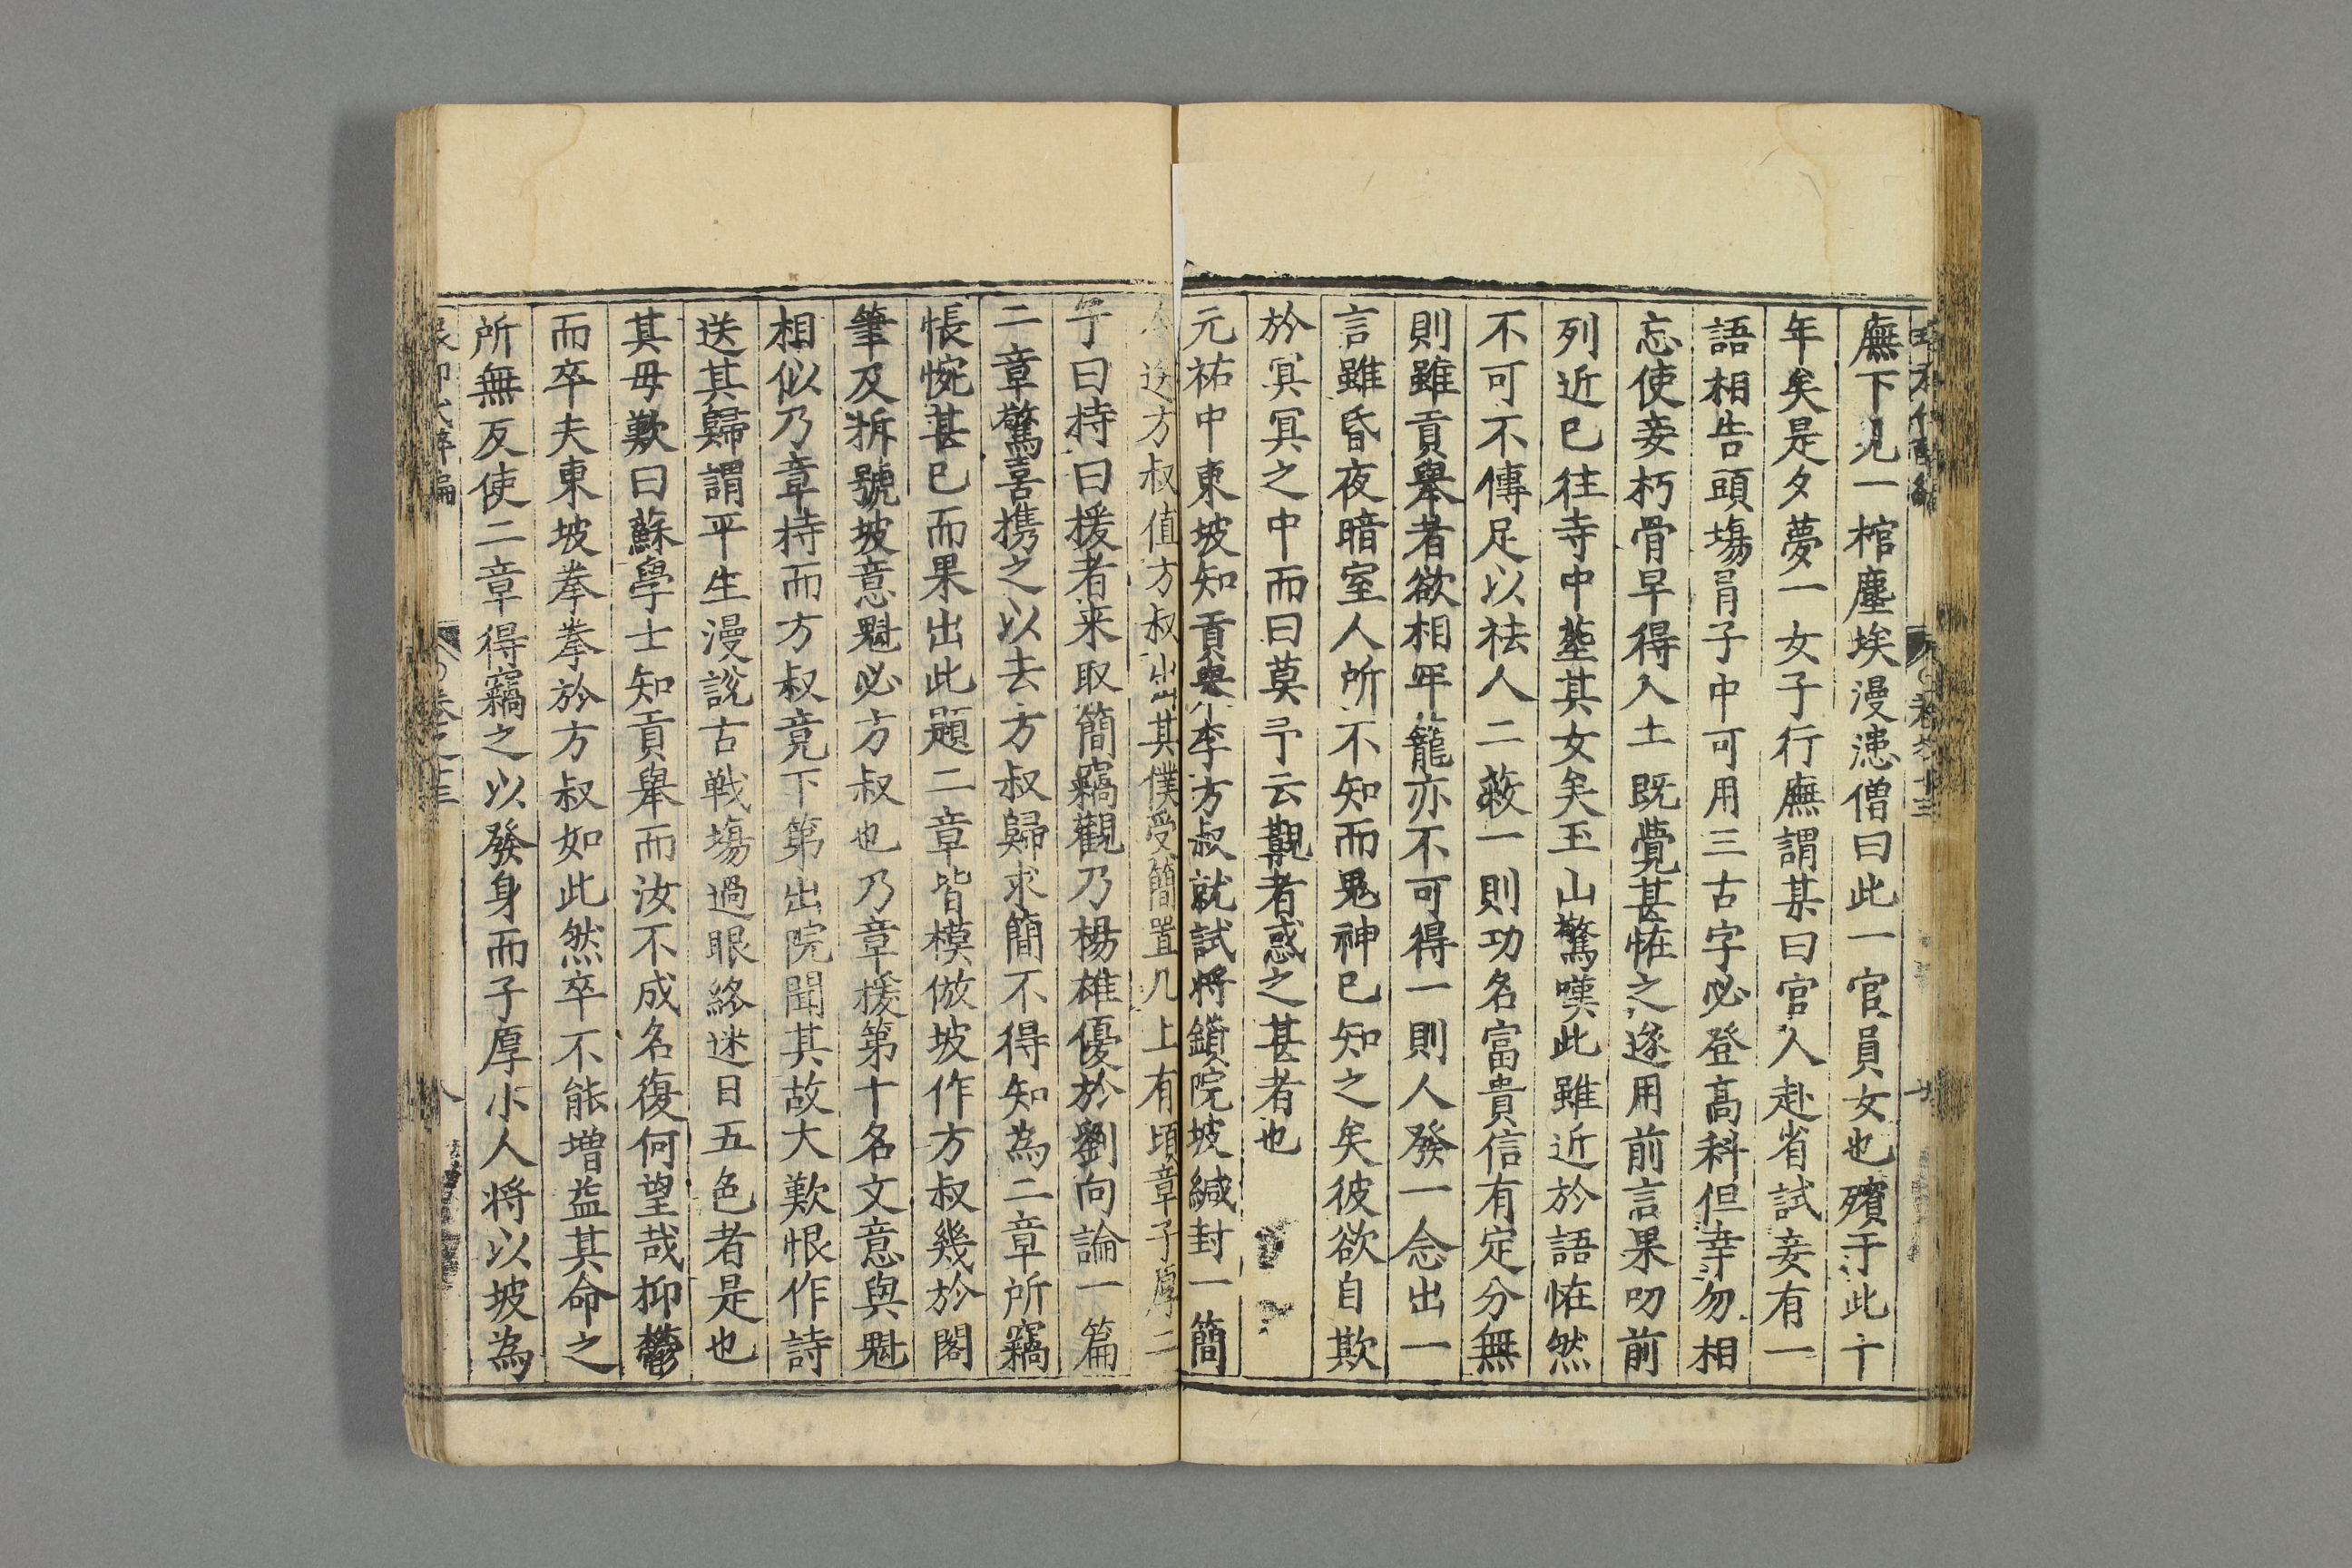 廡下見一棺塵埃漫漶僧曰此一官員女也殯于此十
年矣是夕夢一女子行廡謂某曰官人赴省試妾有一
語相告頭塲冐子中可用三古字必登髙科但幸勿相
忘使妾朽骨早得入土既覺甚恠之遂用前言果叨前
列近已徃寺中塟其女矣玉山驚嘆此雖近於語恠然
不可不傳足以袪人二蔽一則功名冨貴信有定分無
則雖貢舉者欲相牢籠亦不可得一則人發一念出一
言雖昏夜暗室人所不知而鬼神已知之矣彼欲自欺
於冥冥之中而曰莫予云覯者惑之甚者也
元祐中東坡知貢舉李方叔就試將鎖院坡緘封一簡
送方叔值方叔出其僕受簡置几上有頃章子厚二
子曰持曰援者来取簡竊觀乃楊雄優於劉向論一篇
二章驚喜携之以去方叔歸求簡不得知為二章所竊
悵惋甚已而果出此題二章皆模倣坡作方叔幾於閣
筆及拆號坡意魁必方叔也乃章援第十名文意與魁
相似乃章持而方叔竟下第出院聞其故大歎恨作詩
送其歸謂平生漫說古戦塲過眼終迷日五色者是也
其母歎曰蘇學士知貢舉而汝不成名復何望哉抑鬱
而卒夫東坡拳拳於方叔如此然卒不能増益其命之
所無反使二章得竊之以發身而子厚小人将以坡為
卷之十三